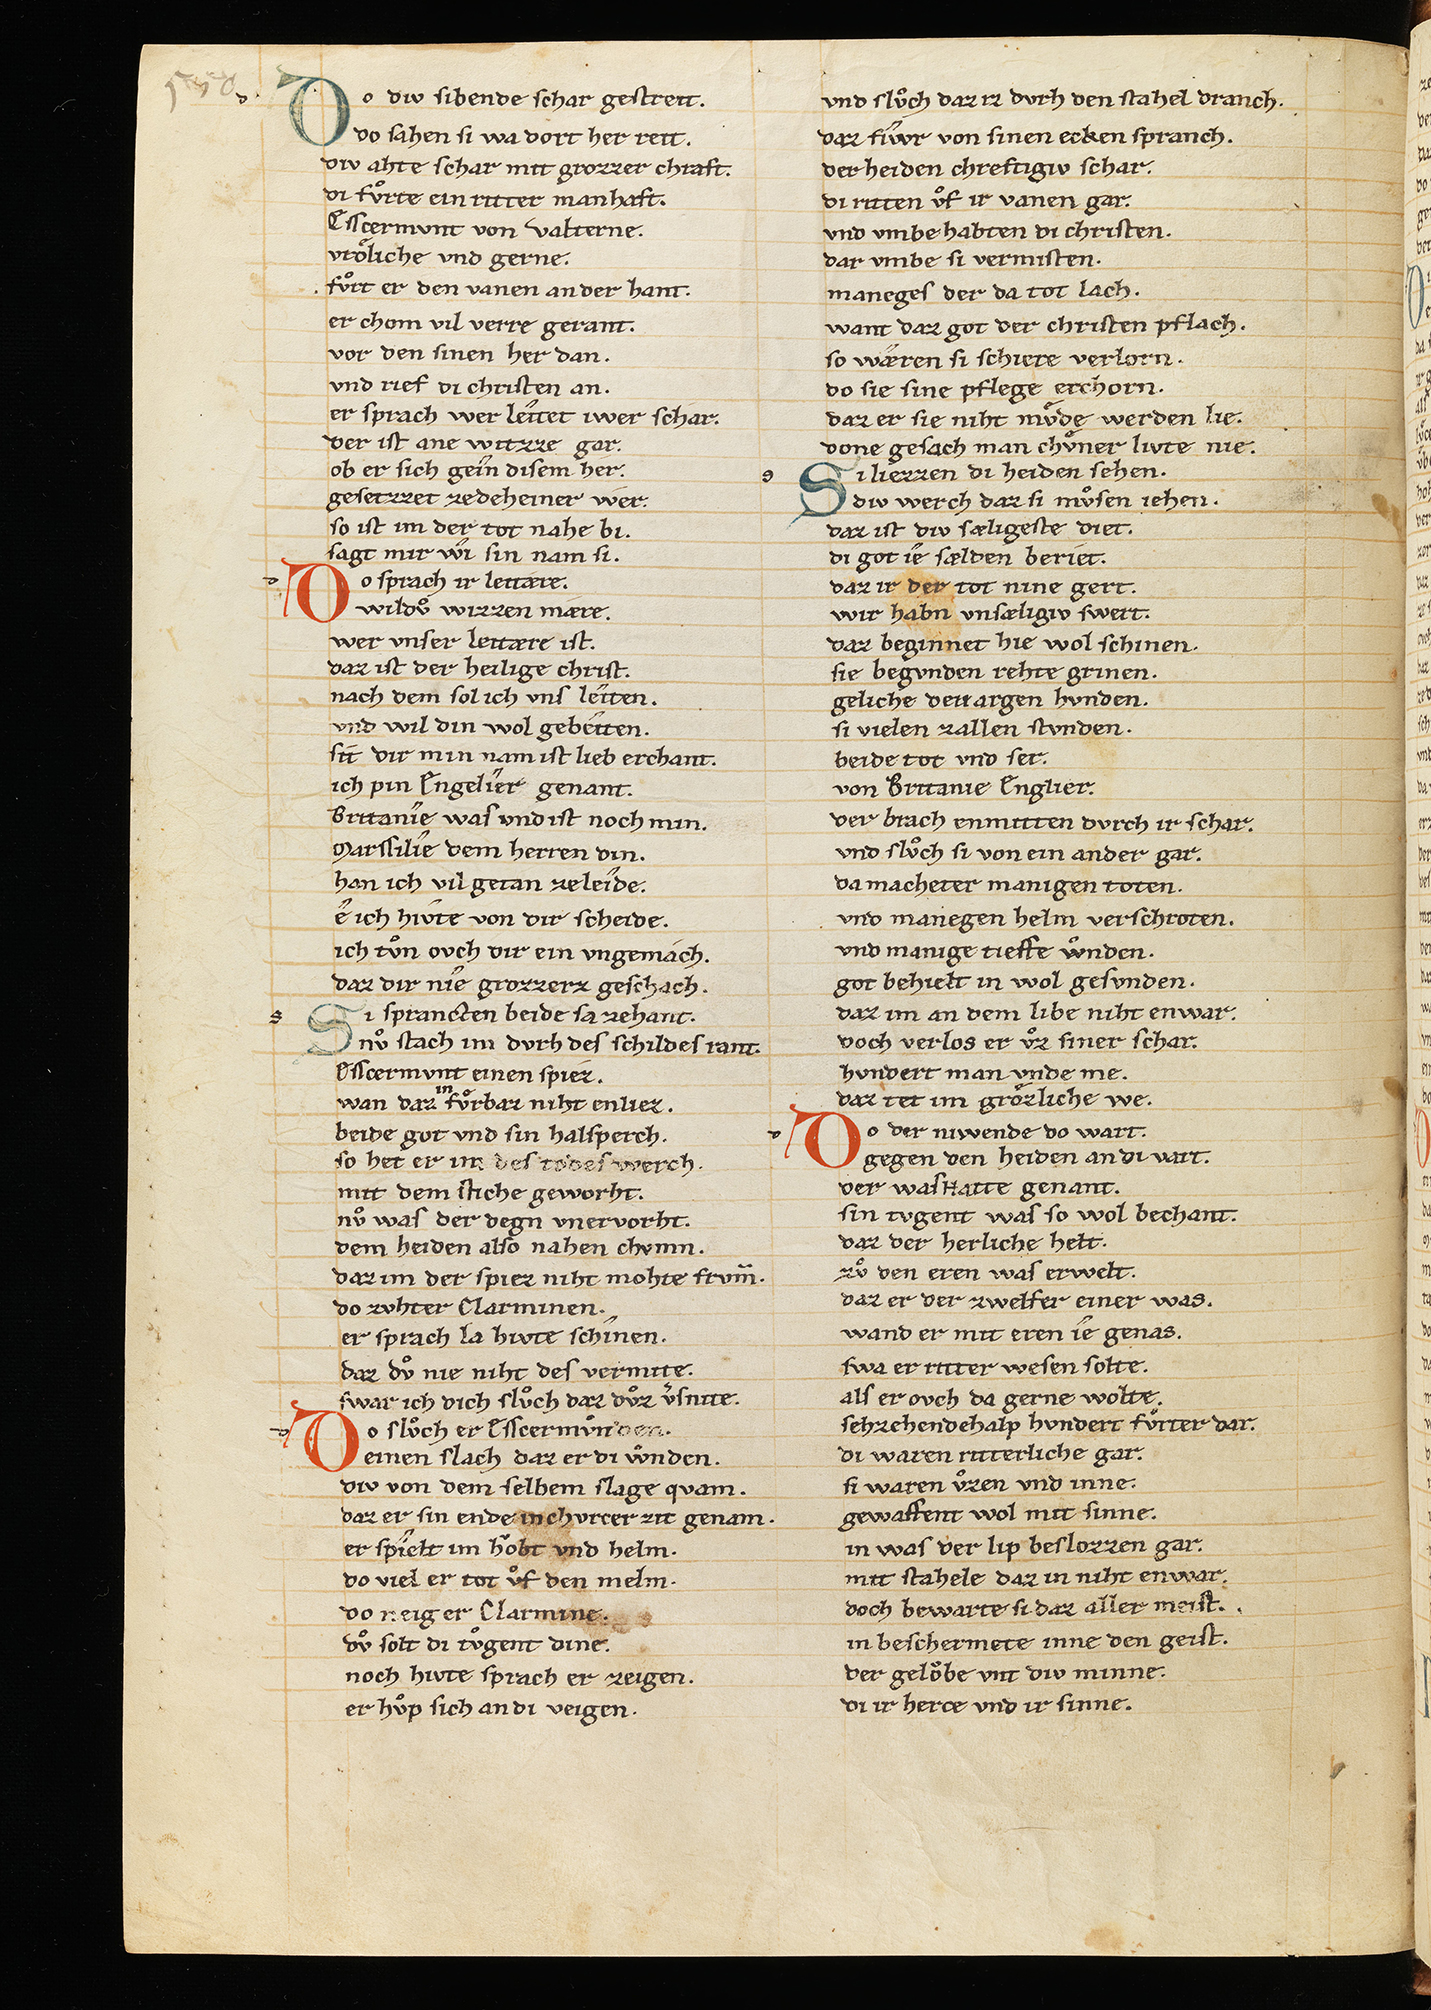 Do diw sibende schar gestreit.
do sahen si wa dort her reit.
diw ahte schar mit grozzer chraft.
di fuͦrte ein ritter manhaft.
Esscermvnt von valterne.
vroͤliche vnd gerne.
fuͦrt er den vanen an der hant.
er chom vil verre gerant.
vor den sinen her dan.
vnd rief di christen an.
er sprach wer leitet iwer schar.
der ist ane witzze gar.
ob er sich gein disem her.
gesetzzet zedeheiner wer.
so ist im der tot nahe bi.
sagt mir wi sin nam si.
Do sprach ir leitære.
wildv̊ wizzen mære.
wer vnser leitære ist.
daz ist der heilige christ.
nach dem sol ich vns leiten.
vnd wil din wol gebeiten.
sit dir min nam ist lieb erchant.
ich pin Engelier genant.
Brittanie was vnd ist noch min.
Marssilie dem herren din.
han ich vil getan zeleide.
e ich hivte von dir scheide.
ich tv̊n ovch dir ein vngemach.
daz dir nie grozzerz geschach.
Si sprancten beide sa zehant.
nv̊ stach im dvrh des schildes rant.
Esscermvnt einen spiez.
wan daz in fv̊rbaz niht enliez.
beide got vnd sin halsperch.
so het er im des todes werch.
mit dem stiche geworht.
nv̊ was der degn vnervorht.
dem heiden also nahen chvmn.
daz im der spiez niht mohte frvm̄.
do zvhter Clarminen.
er sprach la hivte schinen.
daz dv̊ nie niht des vermite.
swaz ich dich slv̊ch daz dv̊z v̓snite.
Do slv̊ch er Esscermv̊nden.
einen slach daz er di wv̊nden.
div von dem selbem slage qvam.
daz er sin ende in chvrcer zit genam.
er spielt im hoͮbt vnd helm.
do viel er tot v̊f den melm.
do neig er Clarmine.
dv̊ solt di tv̊gent dine.
noch hivte sprach er zeigen.
er hv̊p sich an di veigen.
vnd slv̊ch daz iz dvrh den stahel dranch.
daz fiwr von sinen ecken spranch.
der heiden chreftigiv schar.
di ritten v̊f ir vanen gar.
vnd vmbe habten di christen.
dar vmbe si vermisten.
maneges der da tot lach.
want daz got der christen pflach.
so wæren si schiere verlorn.
do sie sine pflege erchorn.
daz er sie niht mv̊de werden lie.
done gesach man chv̊ner livte nie.
Si liezzen di heiden sehen.
div werch daz si mv̊sen iehen.
daz ist div sæligeste diet.
di got ie sælden beriet.
daz ir der tot nine gert.
wir habn vnsæligiv swert.
daz beginnet hie wol schinen.
sie begvnden rehte grinen.
geliche den argen hvnden.
si vielen zallen stvnden.
beide tot vnd ser.
von Brittanie Englier.
der brach enmitten dvrch ir schar.
vnd slv̊ch si von ein ander gar.
da macheter manigen toten.
vnd manegen helm verschroten.
vnd manige tieffe wv̊nden.
got behielt in wol gesvnden.
daz im an dem libe niht enwar.
doch verlos er v̊z siner schar.
hvndert man vnde me.
daz tet im groͤzliche we.
Do der niwende do wart.
gegen den heiden an di vart.
der was Hatte genant.
sin tvgent was so wol bechant.
daz der herliche helt.
zv̊ den eren was erwelt.
daz er der zwelfer einer was.
wand er mit eren ie genas.
swa er ritter wesen solte.
als er ovch da gerne wolte.
sehzehendehalp hvndert fv̊rter dar.
di waren ritterliche gar.
si waren v̊zen vnd inne.
gewaffent wol mit sinne.
in was der lip beslozzen gar.
mit stahele daz in niht enwar.
doch bewarte si daz aller meist.
in beschermete inne den geist.
der geloͮbe vnt div minne.
di ir herce vnd ir sinne.